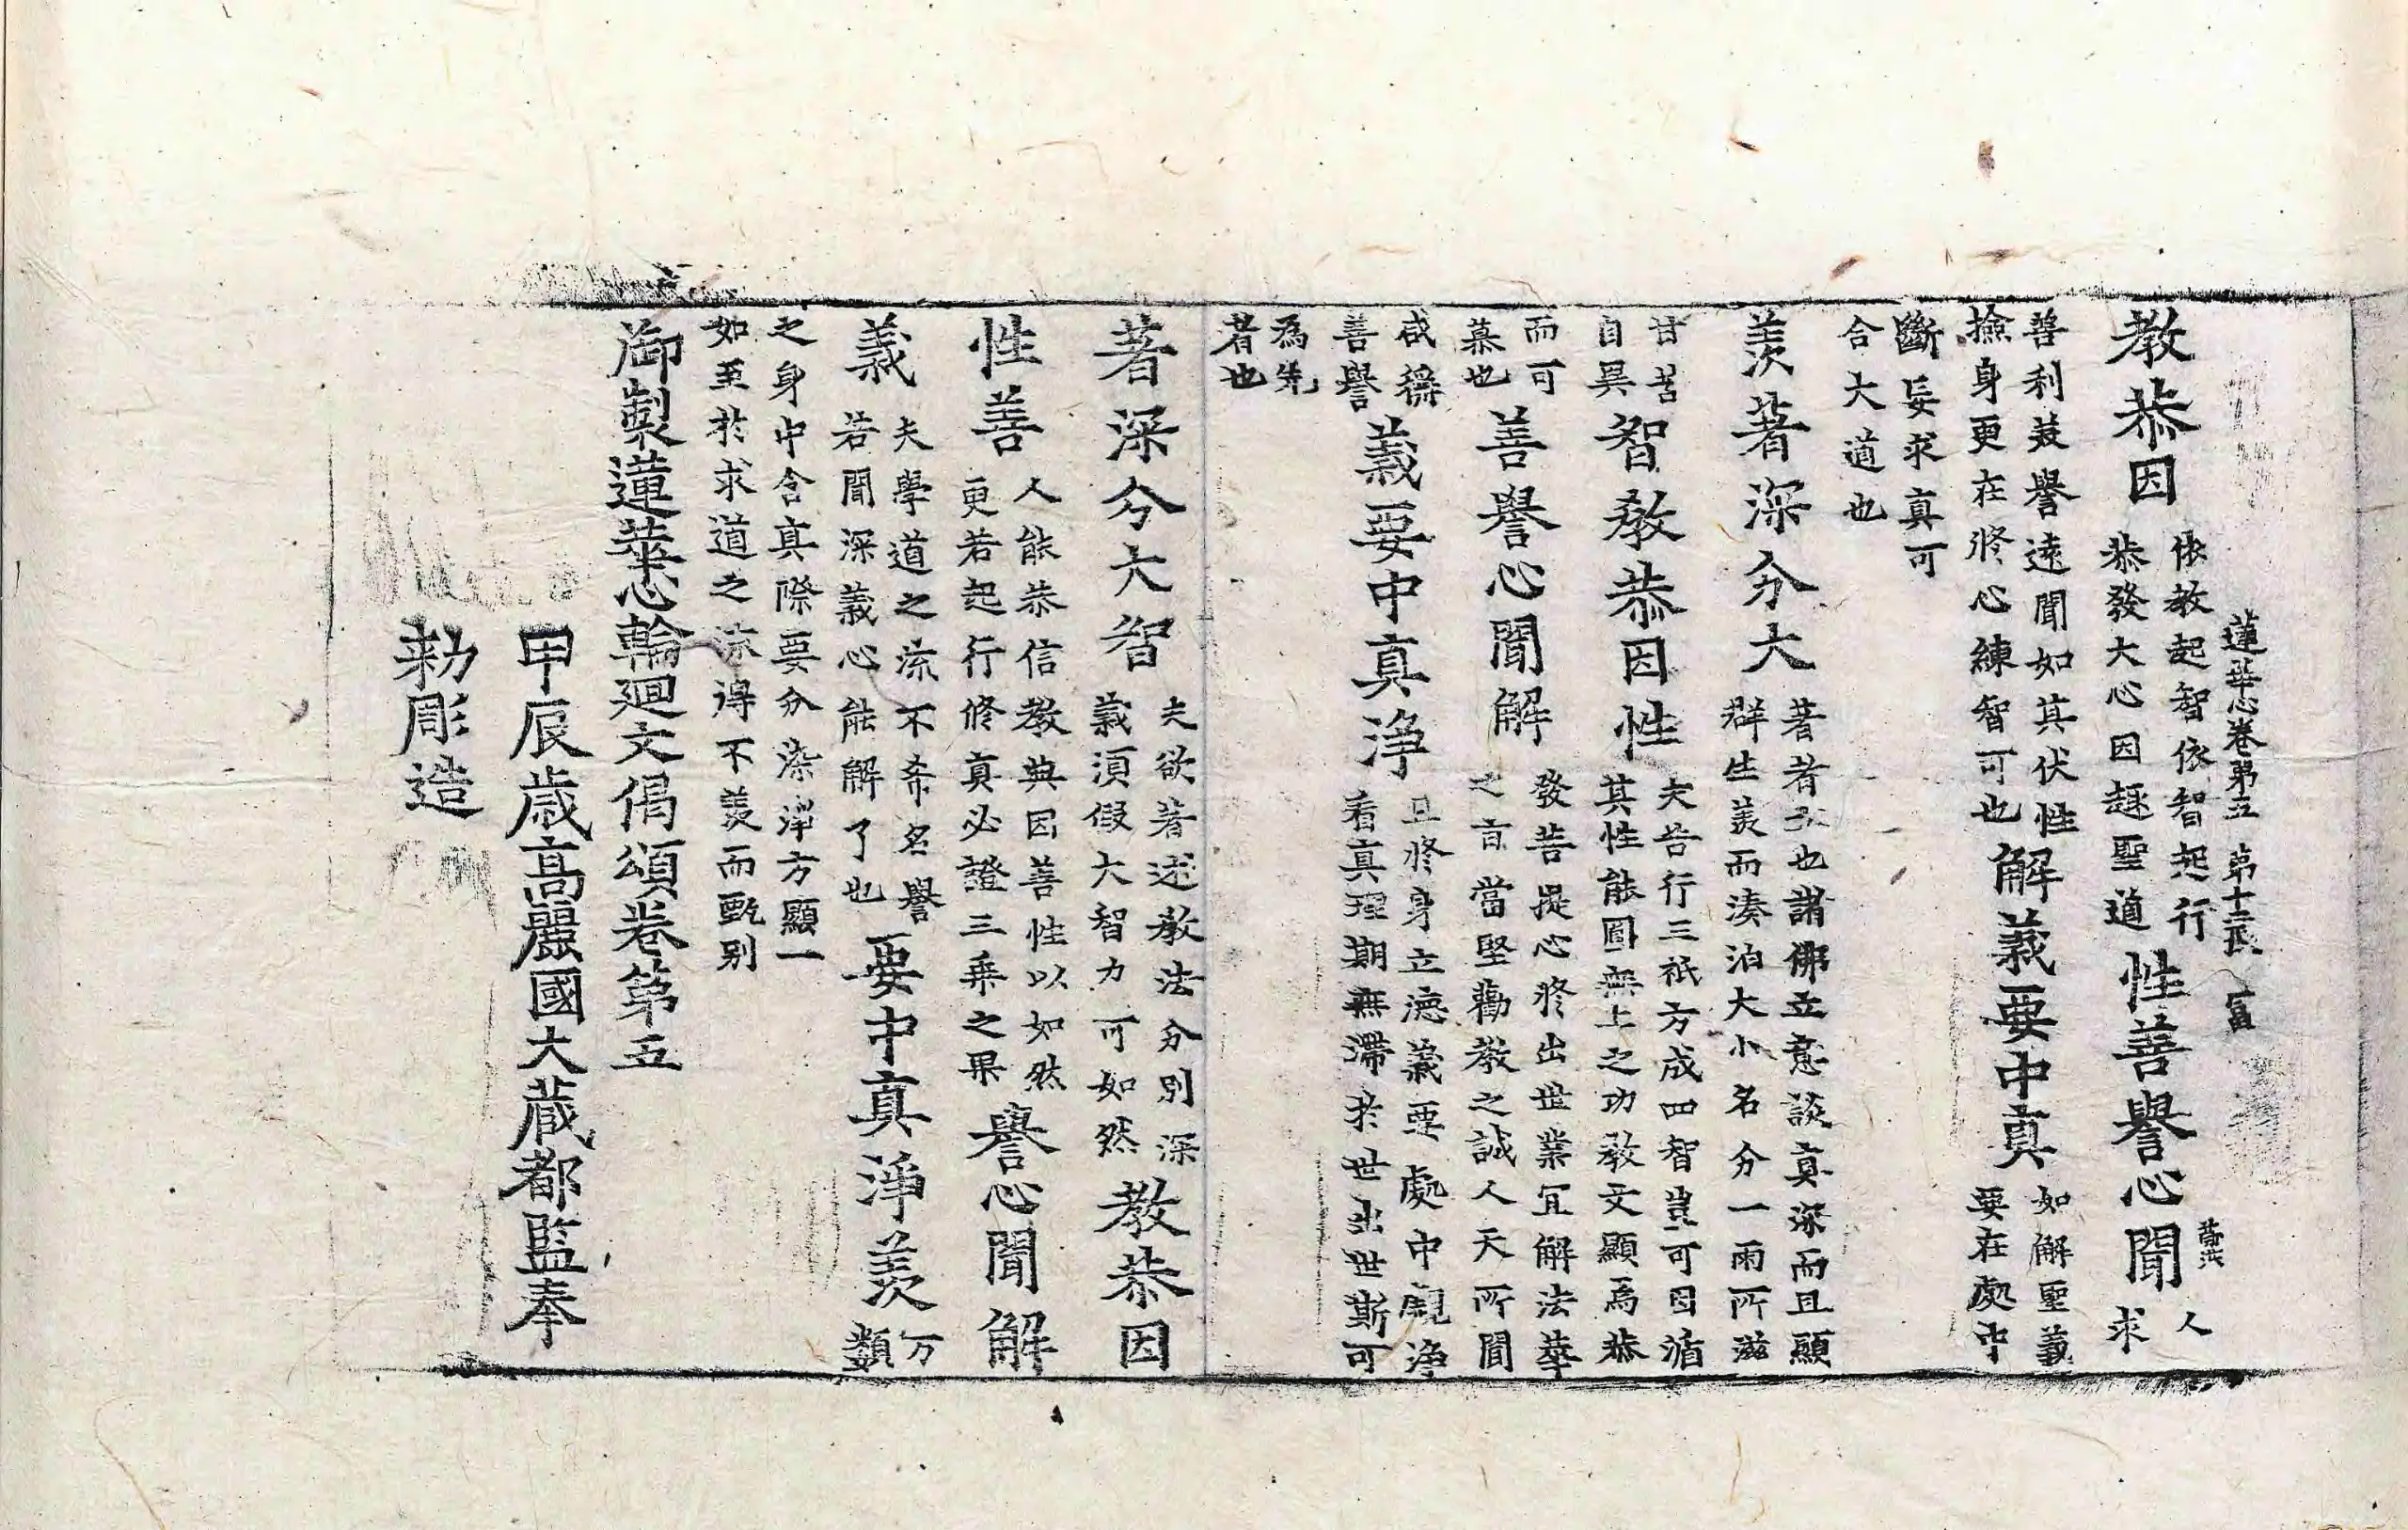 蓮華心卷第五　第十二張　富
教恭因依教起智依智起行恭發大心因趣聖道性善譽心聞人求
善利美譽遠聞如其伏性撿身更在修心練智可也解義要中真如解聖義要在處中
斷妄求真可合大道也
羨著深分大著者也諸佛立意談真深而且顯群生羨而湊泊大小名分一雨所滋
甘苦自異智教恭因性夫苦行三祇方成四智豈可因循其性能圓無上之功教文顯焉恭
而可慕也善譽心聞解發菩提心修出世業宜解法華之言當堅勸教之誠人天所聞
咸稱善譽義要中真淨且修身立德義要處中觀淨看真理期無滯於世出世斯可
為先者也
著深分大智夫欲著述教法分別深義須假大智力可如然教恭因
性善人能恭信教典因善性以如然更若起行修真必證三乘之果譽心聞解
義夫學道之流不希名譽若聞深義心能解了也要中真淨羨万類
之身中含真際要分染淨方顯一如至於求道之流得不羨而甄别
御製蓮華心輪廻文偈頌卷第五
甲辰歲高麗國大藏都監奉
勑彫造